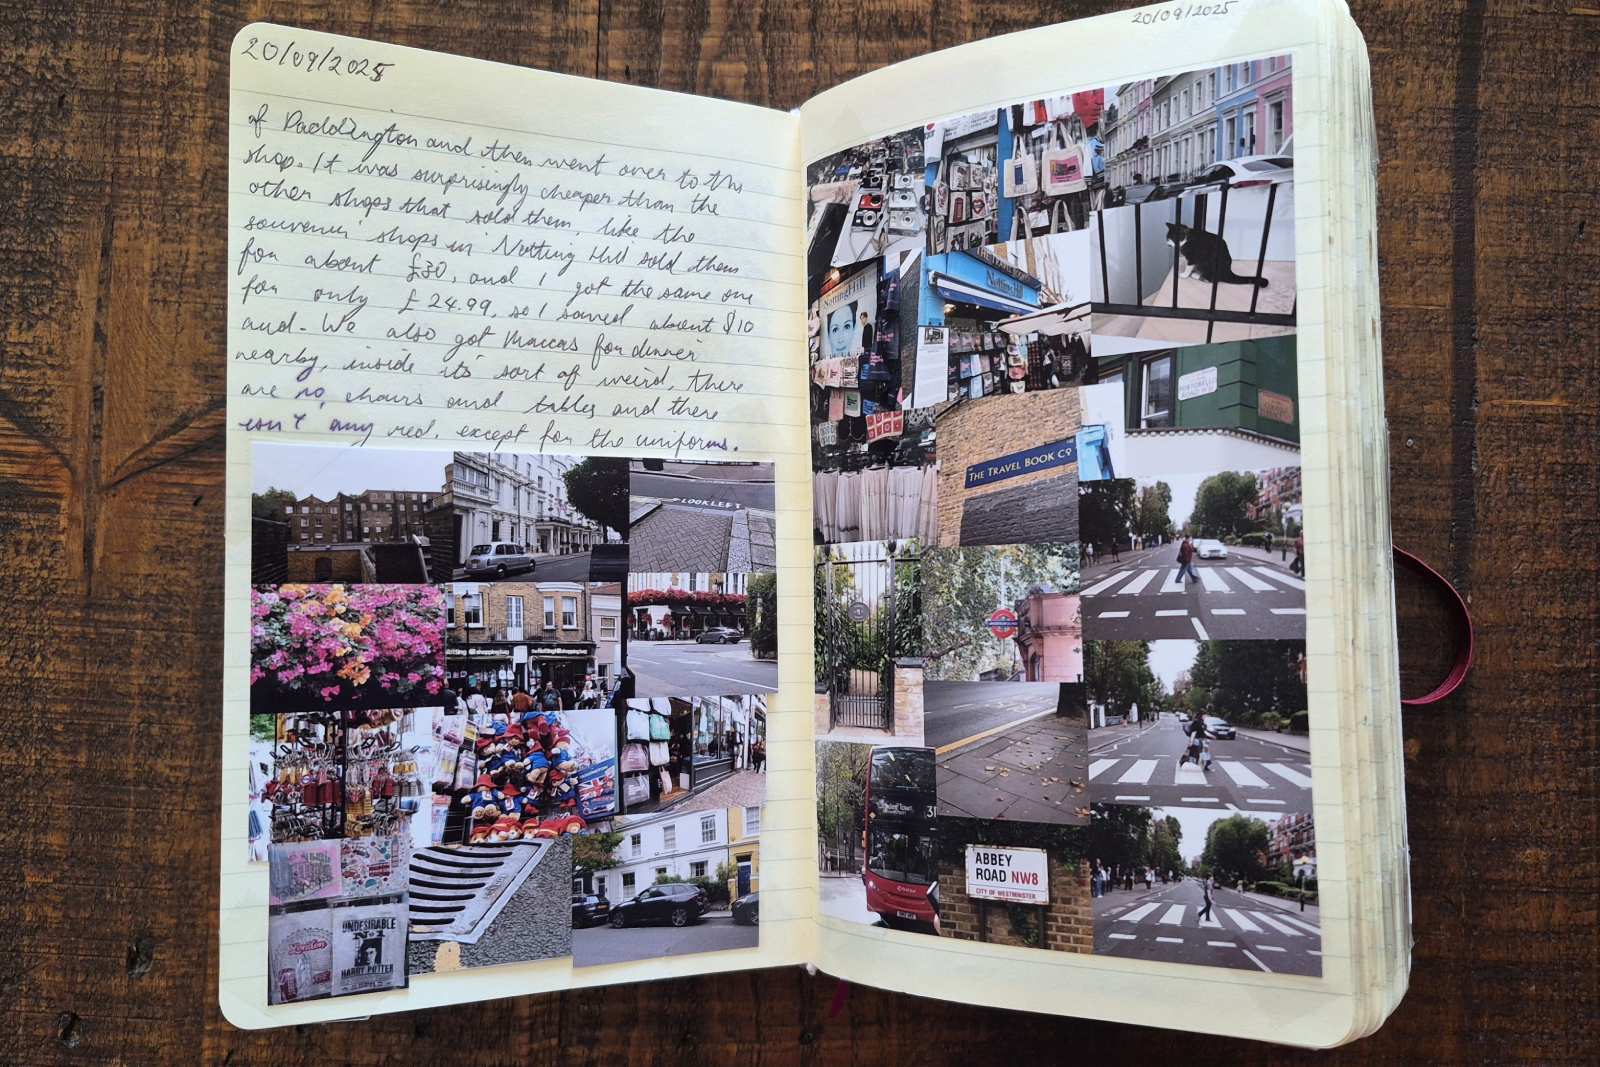 20/09/2025
of Paddington and then went over to the
shop. It was surprisingly cheaper than the
other shops that sold them, like the
souvenir shops in Notting Hill sold them
for about £30, and I got the same one
for only £24.99, so I saved about $10
aud. We also got Maccas for dinner
nearby, inside it's sort of weird, there
are no chairs and tables and there
isn't any red, except for the uniforms.
LOOK LEFT
the Notting Hill shopping bag
London
UNDESIRABLE
No 1
HARRY POTTER
20/09/2025
Notting Hill
Notting Hill
PORTOBELLO
THE TRAVEL BOOK Co
UNDERGROUND
31
ABBEY
ROAD NW8
CITY OF WESTMINSTER